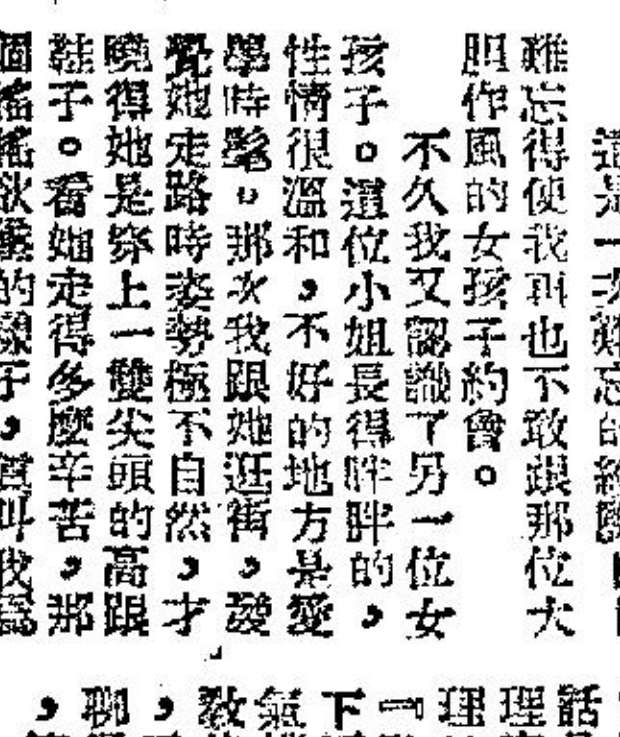 這是一次難忘的經驗
難忘得使我再也不敢跟那位大
胆作風的女孩子約會。
不久我又認識了另一位女
孩子。這位小姐長得胖胖的，
性情很溫和，不好的地方是愛
學時髦。那次我跟她逛街，發
覺她走路時姿勢極不自然，才
曉得她是穿上一雙尖頭的高跟
鞋子。看她走得多麼辛苦，那
個搖搖欲墜的樣子，眞叫我爲
話
理
理
一
下
氣
教，
聊，